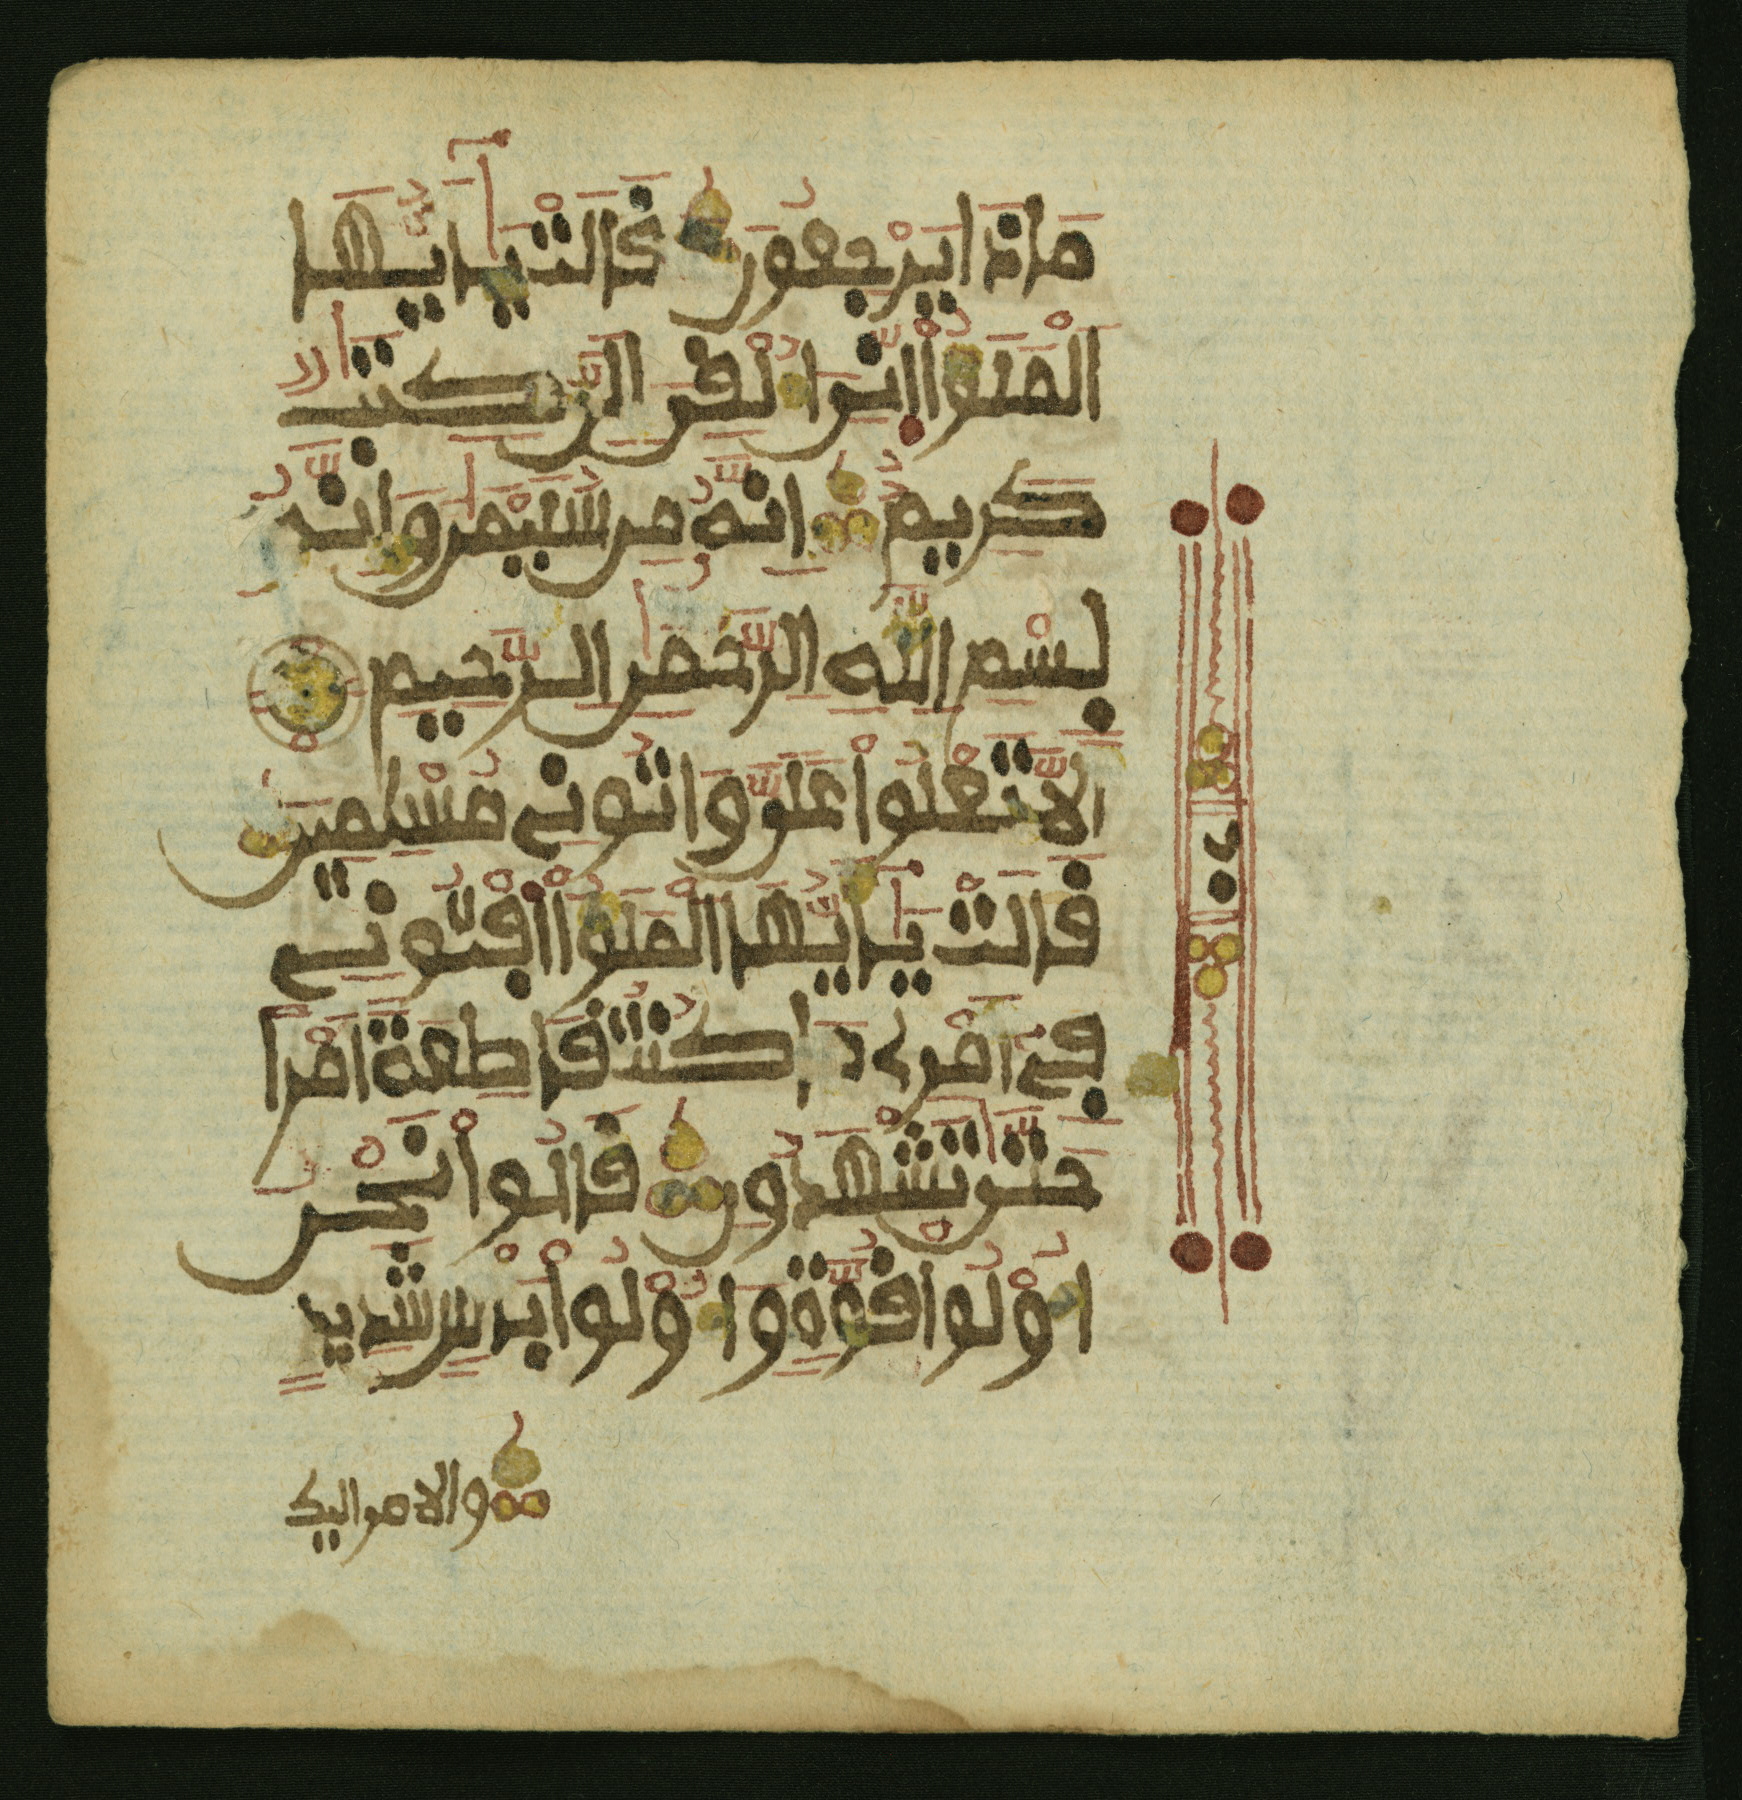 مَاذَا يَرْجِعُونَ قَالَتْ يَٰأَيُّهَا
الْمَلَؤُا إِنِّيَ أُلْقِيَ إِلَيَّ كِتَٰبٌ
كَرِيمٌ إِنَّهُ مِن سُلَيْمَٰنَ وَإِنَّهُ
بِسْمِ اللَّهِ الرَّحْمَٰنِ الرَّحِيمِ
أَلَّا تَعْلُوا عَلَيَّ وَأْتُونِي مُسْلِمِينَ
قَالَتْ يَٰأَيُّهَا الْمَلَؤُا أَفْتُونِي
فِي أَمْرِي مَا كُنتُ قَاطِعَةً أَمْرًا
حَتَّىٰ تَشْهَدُونِ قَالُوا نَحْنُ
أُوْلُوا قُوَّةٍ وَأُوْلُوا بَأْسٍ شَدِيدٍ
والامر اليك